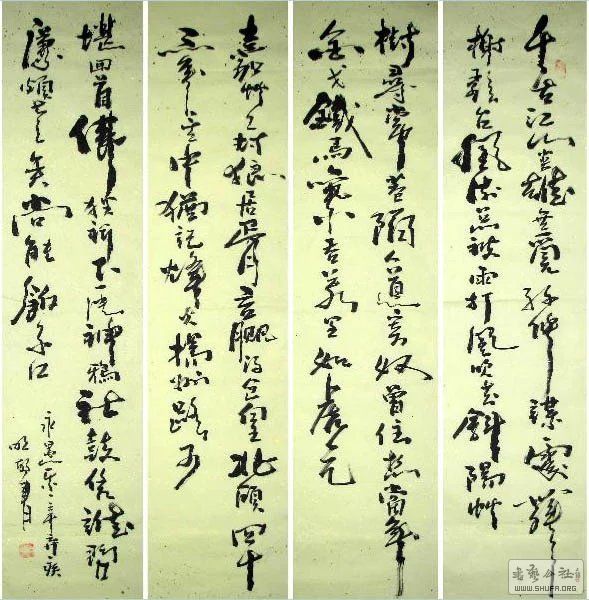 千古江山英雄無覓孫仲謀處舞
榭歌台風流總被雨打風吹去斜陽草
樹尋常巷陌人道寄奴曾住想當年
金戈鐵馬氣吞萬里如虎元
嘉草草封狼居胥意贏得倉皇北顧四十
三年望中猶記烽火揚州路可
堪回首佛狸祠下一片神鴉社鼓憑誰問
廉頗老矣尚能飯否
永遇樂辛棄疾
WWW.SHUFA.ORG